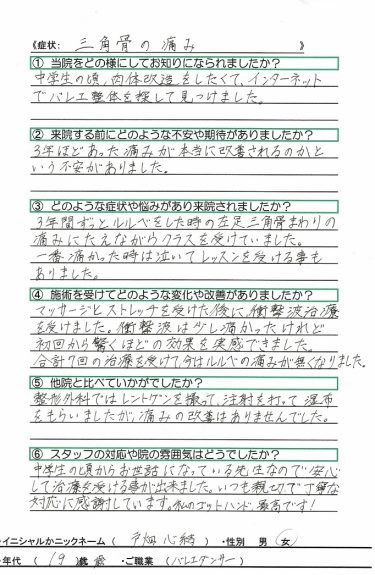 《症状: 三角骨の痛み 》
① 当院をどの様にしてお知りになられましたか?
中学生の頃,肉体改造をしたくて、インターネット
でバレエ整体を探して見つけました。
② 来院する前にどのような不安や期待がありましたか?
3年ほどあった痛みが本当に改善されるのかと
いう不安がありました。
③ どのような症状や悩みがあり来院されましたか?
3年間ずっとルルベをした時の左足三角骨まわりの
痛みにたえながらクラスを受けていました。
一番痛かった時は泣いてレッスンを受ける事も
ありました。
④ 施術を受けてどのような変化や改善がありましたか?
マッサージとストレッチを受けた後に、衝撃波治療
を受けました。衝撃波は少し痛かったけれど
初回から驚くほどの効果を実感できました。
合計7回の治療を受けて、今はルルベの痛みが無くなりました。
⑤ 他院と比べていかがでしたか?
整形外科ではレントゲンを撮って、注射を打って湿布
をもらいましたが、痛みの改善はありませんでした。
⑥ スタッフの対応や院の雰囲気はどうでしたか?
中学生の頃からお世話になっている先生なので安心
して治療を受ける事が出来ました。いつも親切で丁寧な
対応に感謝しています。私のゴッドハンド、最高です!
・イニシャルかニックネーム ( 戸畑心結 ) ・性別 男 女
・年代 ( 19 )歳 ・ご職業 (バレエダンサー)